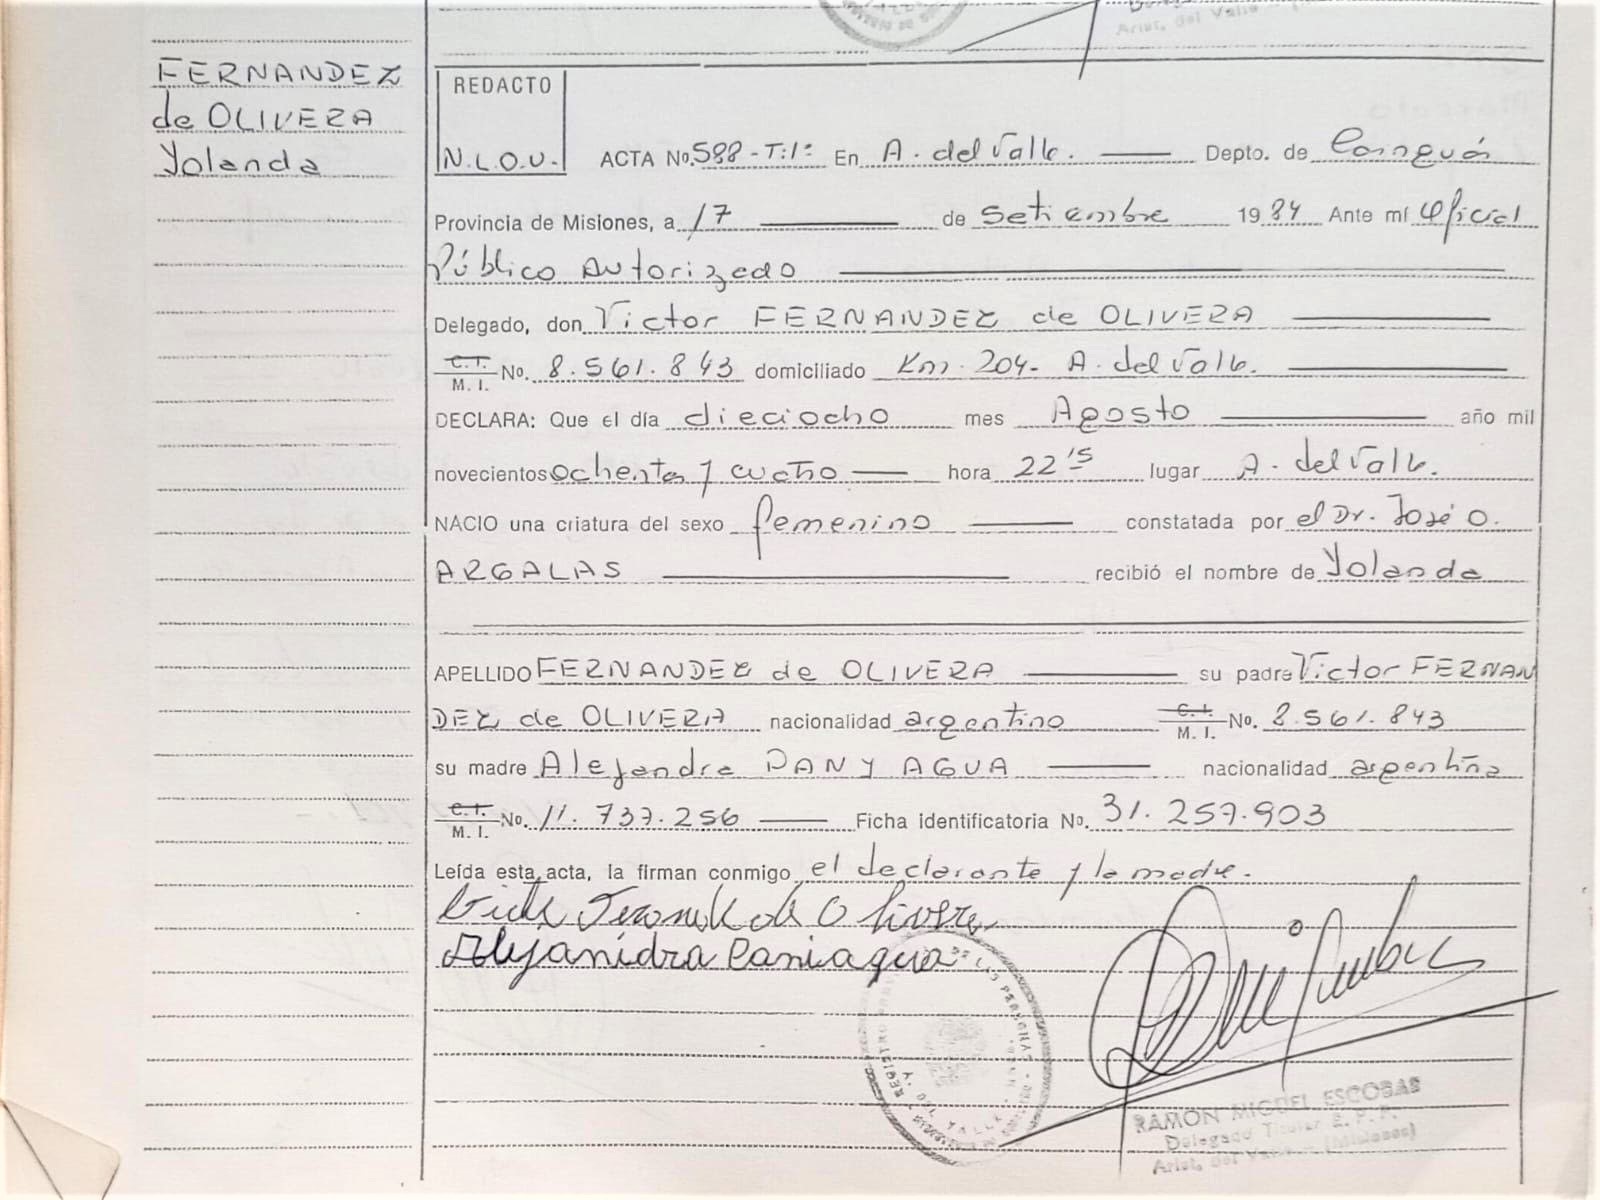 Arist. del Valle
FERNANDEZ
de OLIVERA
Yolanda
REDACTO
N.L.O.U.
ACTA No. 588-T:1º En A. del Valle. Depto. de Cainguás
Provincia de Misiones, a 17 de Setiembre 1984 Ante mí Oficial
Público Autorizado
Delegado, don Victor FERNANDEZ de OLIVERA
C.I. M. I. No. 8.561.843 domiciliado Km. 204- A. del Valle.
DECLARA: Que el día dieciocho mes Agosto año mil
novecientos ochenta y cuatro hora 22'15 lugar A. del Valle.
NACIO una criatura del sexo femenino constatada por el Dr. José O.
ARGALAS recibió el nombre de Yolanda
APELLIDO FERNANDEZ de OLIVERA su padre Victor FERNAN
DEZ de OLIVERA nacionalidad argentino C.I. M. I. No. 8.561.843
su madre Alejandra PANYAGUA nacionalidad argentina
C.I. M. I. No. 11.737.256 Ficha identificatoria No. 31.257.903
Leída esta acta, la firman conmigo el declarante y la madre.
de Olivera
Alejanidra Paniagua
DE LAS PERSONAS
RAMON MIGUEL ESCOBAR
Delegado Titular R. P. P.
Arist. del Valle - (Misiones)